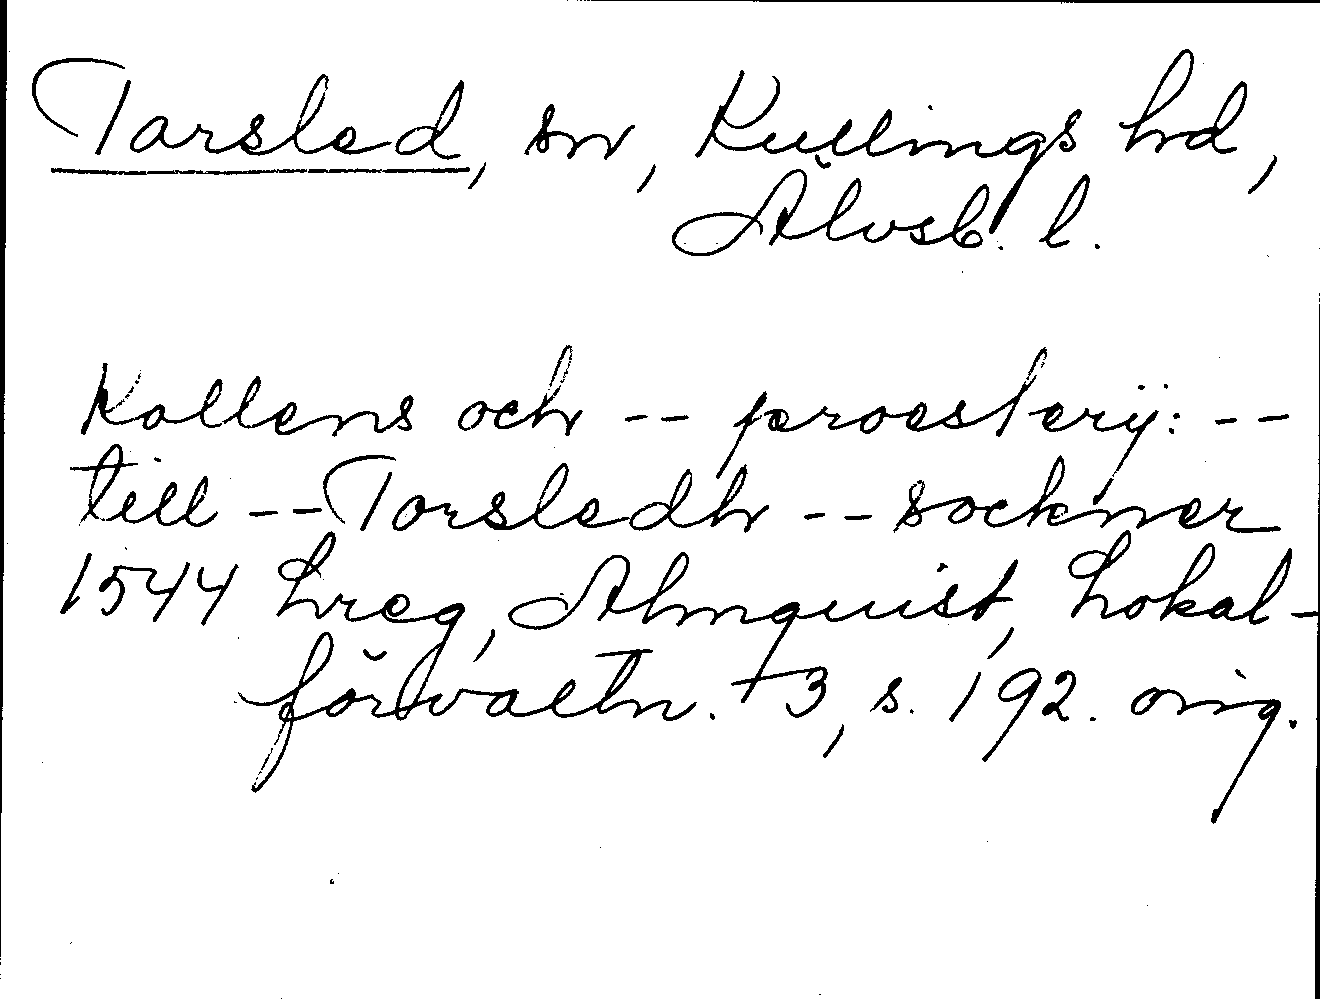 Tarsled, sn, Kullings hd,
Älvsb. l.
Kollens och -- proesterij: --
till -- Torsledh -- sockner
1544 Lreg, Almquist, Lokal-
förvaltn. +3, s. 192. orig.